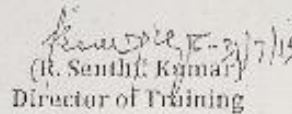 (R. Senthil Kumar)
Director of Training